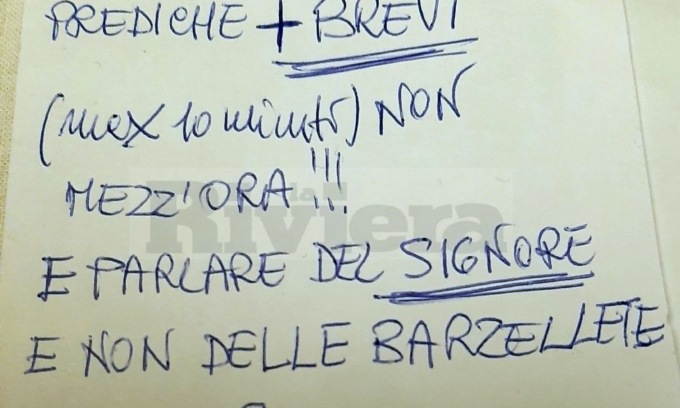 PREDICHE + BREVI
(max 10 minuti) NON
MEZZ'ORA!!!
la
Riviera
E PARLARE DEL SIGNORE
E NON DELLE BARZELLETE